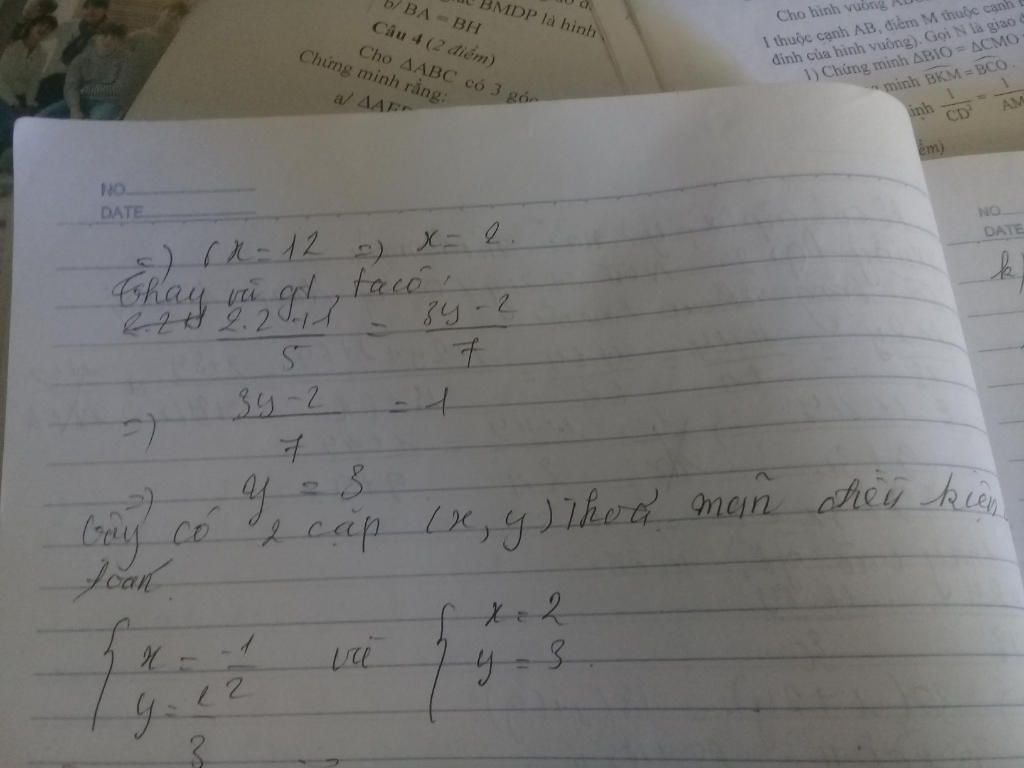 b/ BA = BH
BMDP là hình
Câu 4 (2 điểm)
Cho ΔABC có 3 góc
Chứng minh rằng:
Cho hình vuông
1 thuộc cạnh AB, điểm M thuộc cạnh
đỉnh của hình vuông). Gọi N là giao
1) Chứng minh ΔBIO = ΔCMO
minh BKM = BCO.
1/CD² = 1/AM
NO
DATE
NO
DATE
=) 6x = 12 =) x = 2.
Thay và gt, ta có:
2.2+1/5 = 3y-2/7
=) 3y-2/7 = 1
=) y = 3
Vậy có 2 cặp (x, y) thoả mãn điều kiện
toán.
{ x = -1/2 và { x = 2
y = 2/3 y = 3.